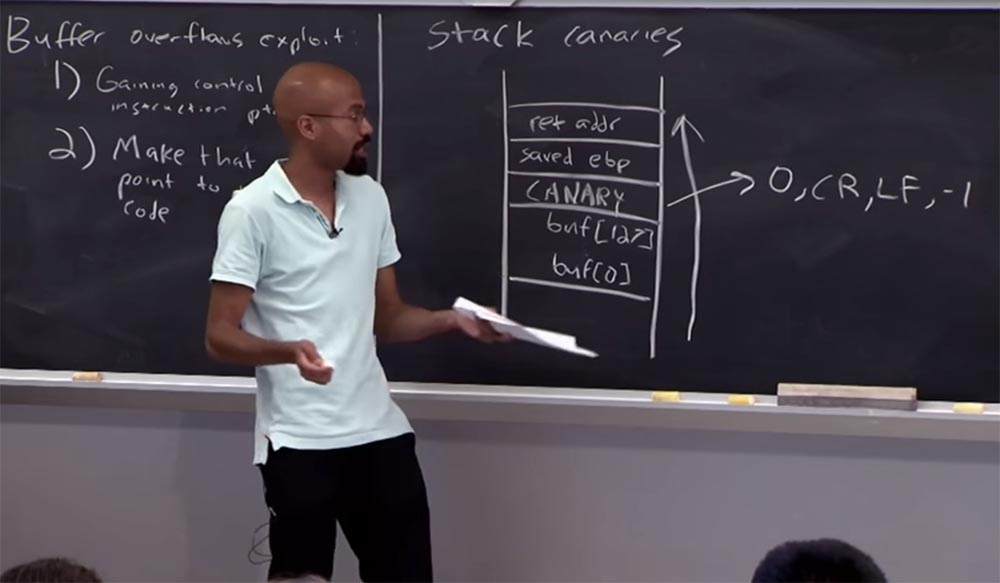 Buffer overflows exploit:
1) Gaining control
instruction pt
2) Make that
point to
code
Stack canaries
ret addr
saved ebp
CANARY
buf[127]
buf[0]
0, CR, LF, -1